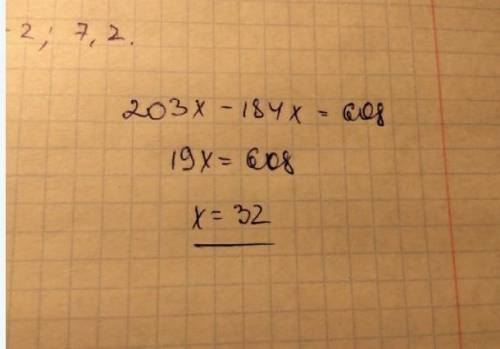 2; 7,2.
203x - 184x = 608
19x = 608
x = 32